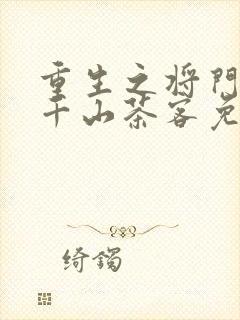 重生之将门
千山茶客免
绮镯